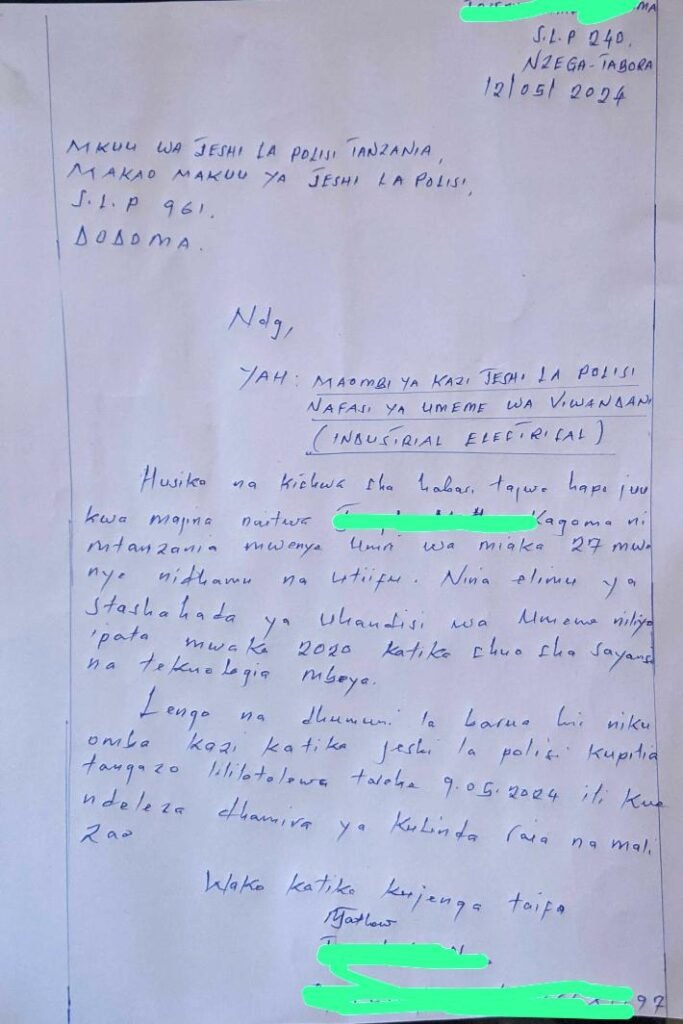 MA
S.L.P 240,
NZEGA-TABORA
12/05/2024
MKUU WA JESHI LA POLISI TANZANIA,
MAKAO MAKUU YA JESHI LA POLISI,
S.L.P 961.
DODOMA.
Ndg,
YAH: MAOMBI YA KAZI JESHI LA POLISI
NAFASI YA UMEME WA VIWANDANI
(INDUSTRIAL ELECTRICAL)
Husika na kichwa cha habari tajwa hapo juu
kwa majina naitwa Kagoma ni
mtanzania mwenye umri wa miaka 27 mwe
nye nidhamu na utiifu. Nina elimu ya
Stashahada ya uhandisi wa Umeme niliyo
ipata mwaka 2020 katika chuo cha Sayansi
na teknologia mbeya.
Lengo na dhumuni la barua hii niku
omba kazi katika jeshi la polisi kupitia
tangazo lililotolewa tarehe 9.05.2024 ili kue
ndeleza dhamira ya kulinda raia na mali
zao
Wako katika kujenga taifa
97